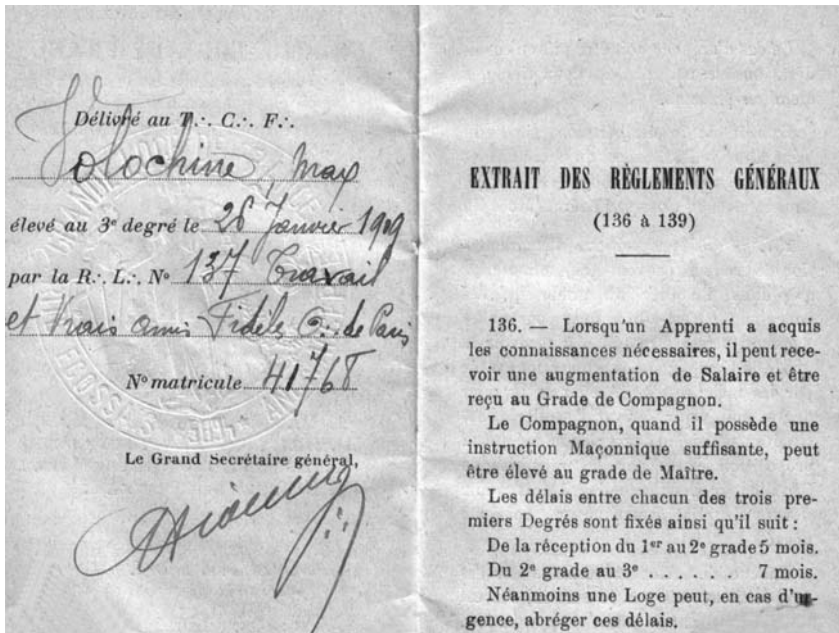 Délivré au T∴ C∴ F∴
Volochine, Max
élevé au 3e degré le 26 Janvier 1909
par la R∴ L∴ No 137 Travail
et Vrais amis Fidèles O∴ de Paris
No matricule 41768
Le Grand Secrétaire général,
EXTRAIT DES RÈGLEMENTS GÉNÉRAUX
(136 à 139)
136. — Lorsqu'un Apprenti a acquis
les connaissances nécessaires, il peut rece-
voir une augmentation de Salaire et être
reçu au Grade de Compagnon.
Le Compagnon, quand il possède une
instruction Maçonnique suffisante, peut
être élevé au grade de Maître.
Les délais entre chacun des trois pre-
miers Degrés sont fixés ainsi qu'il suit :
De la réception du 1er au 2e grade 5 mois.
Du 2e grade au 3e . . . . . . 7 mois.
Néanmoins une Loge peut, en cas d'ur-
gence, abréger ces délais.